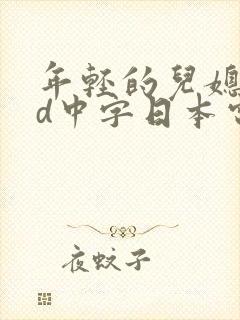 年轻的兒媳
d中字日本
夜蚊子